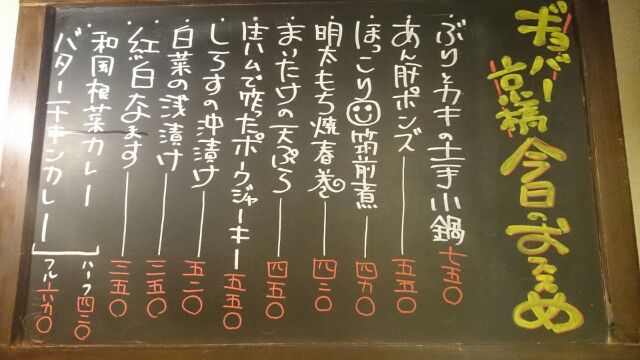 ギョバー
京橋 今日のおすすめ
・ぶりとカキの土手小鍋 七五〇
・あん肝ポンズ 五五〇
・ほっこり筑前煮 四九〇
・明太もち焼春巻 四二〇
・まいたけの天ぷら 四五〇
・生ハムで作ったポークジャーキー 五五〇
・しらすの沖漬け 五二〇
・白菜の浅漬け 三五〇
・紅白なます 三五〇
和風根菜カレー ハーフ 四二〇
バターチキンカレー フル 六九〇